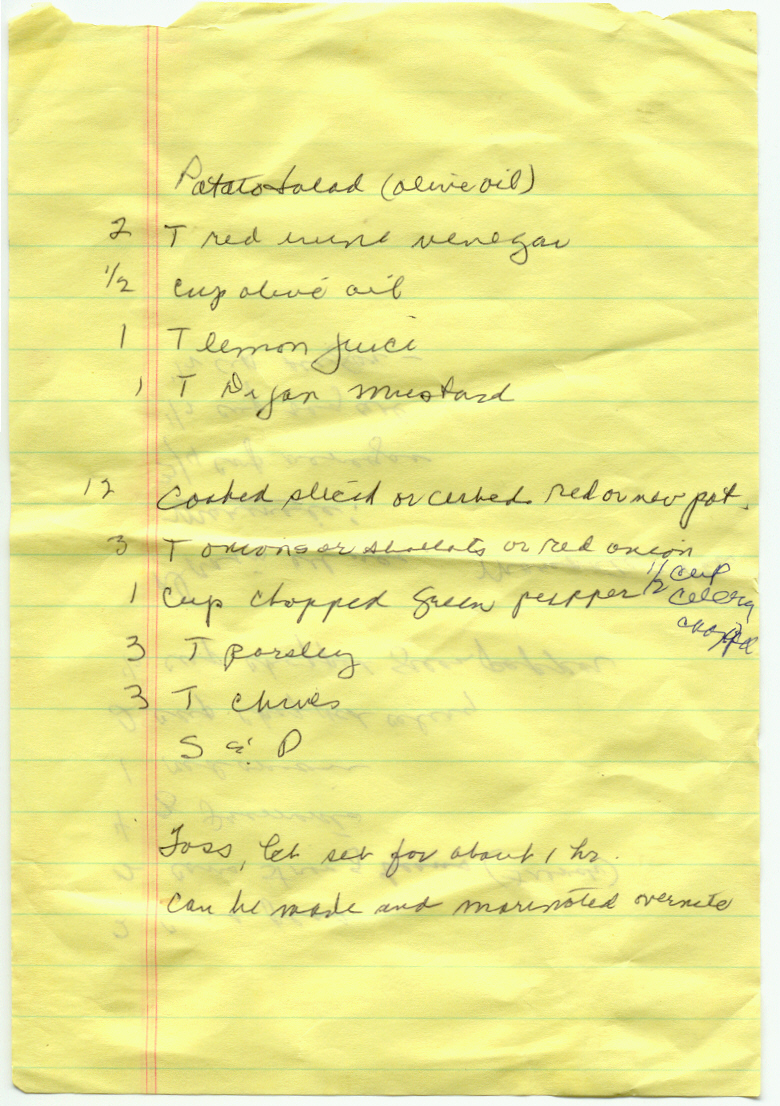 Potato Salad (olive oil)
2 T red wine venegar
1/2 cup olive oil
1 T lemon juice
1 T Dijan mustard
12 Cooked sliced or cubed red or new pot.
3 T onions or shallots or red onion
1 cup chopped green pepper 1/2 cup
celery
chopped
3 T parsley
3 T chives
S & P
Toss, let set for about 1 hr.
can be made and marinated overnite